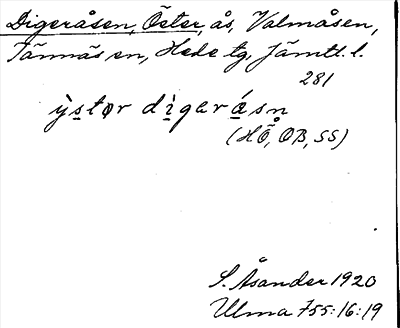 Digeråsen, Öster, ås, Valmåsen,
Tännäs sn, Hede tg, Jämtl. l.
281
ỳstər dìgəråsn
(HÖ, OB, SS)
S. Åsander 1920
Ulma 755:16:19